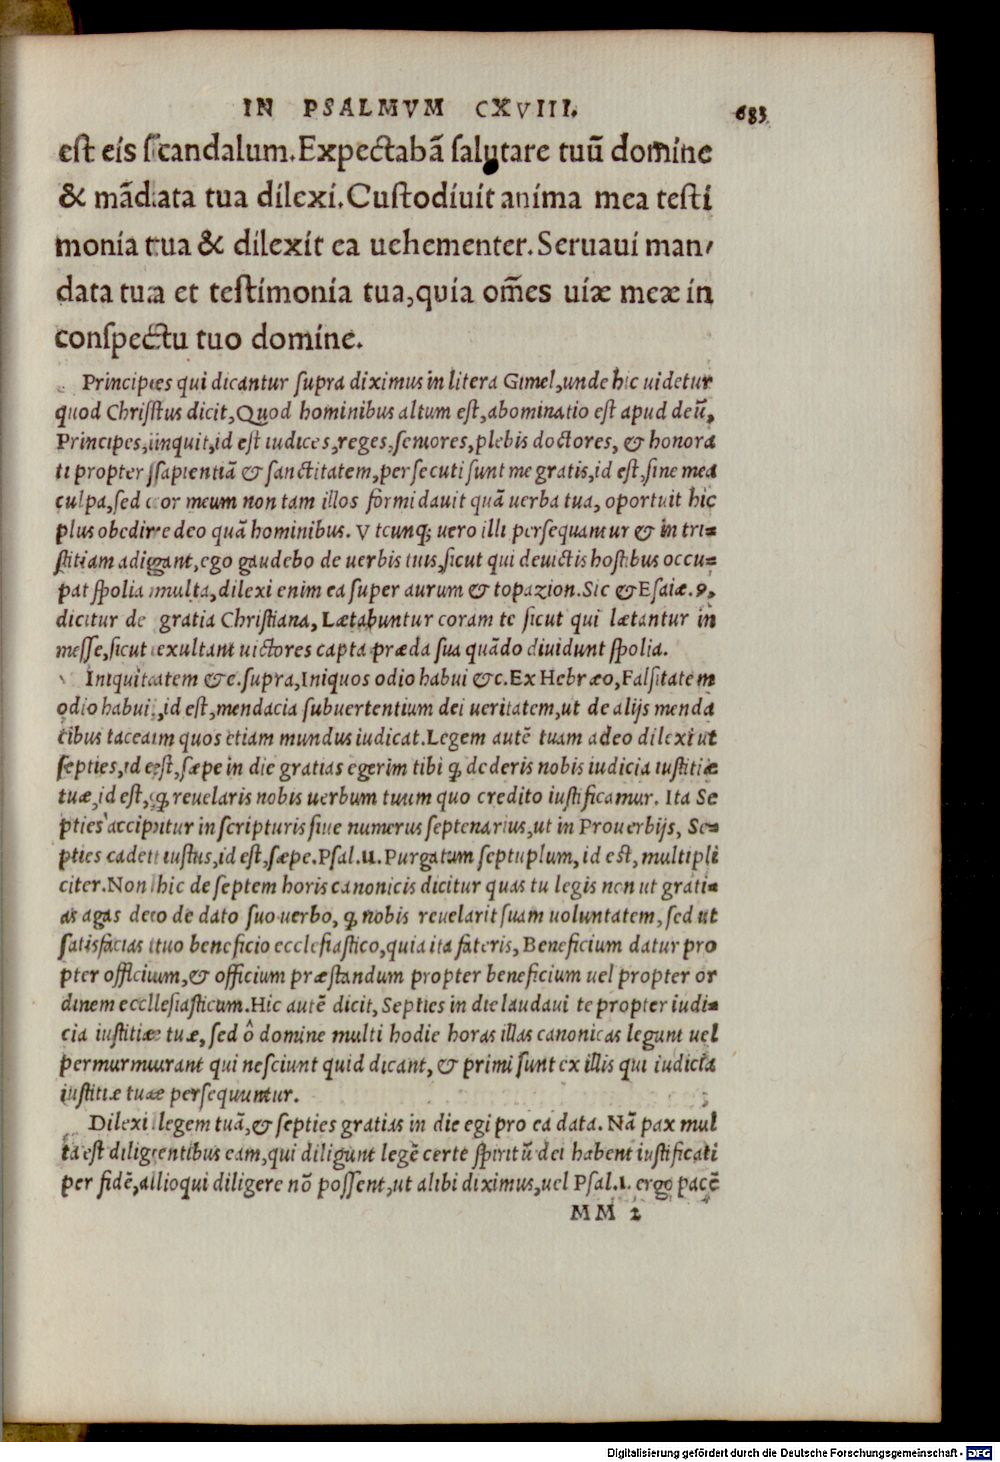 IN PSALMVM CXVIII. 683
est eis scandalum. Expectabā salutare tuū domine
& mādata tua dilexi. Custodiuit anima mea testi
monia tua & dilexit ea uehementer. Seruaui man/
data tua et testimonia tua, quia om̄es uiæ meæ in
conspectu tuo domine.
Principes qui dicantur supra diximus in litera Gimel, unde hic uidetur
quod Christus dicit, Quod hominibus altum est, abominatio est apud deū,
Principes, inquit, id est iudices, reges, seniores, plebis doctores, & honora
ti propter sapientiā & sanctitatem, persecuti sunt me gratis, id est, sine mea
culpa, sed cor meum non tam illos formidauit quā uerba tua, oportuit hic
plus obedire deo quā hominibus. Vtcunq; uero illi persequantur & in tri=
stitiam adigant, ego gaudebo de uerbis tuis, sicut qui deuictis hostibus occu=
pat spolia multa, dilexi enim ea super aurum & topazion. Sic & Esaiæ. 9.
dicitur de gratia Christiana, Lætabuntur coram te sicut qui lætantur in
messe, sicut exultant uictores capta præda sua quādo diuidunt spolia.
Iniquitatem &c. supra, Iniquos odio habui &c. Ex Hebræo, Falsitatem
odio habui, id est, mendacia subuertentium dei ueritatem, ut de alijs menda
cibus taceam quos etiam mundus iudicat. Legem autē tuam adeo dilexi ut
septies, id est, sæpe in die gratias egerim tibi ꝙ dederis nobis iudicia iustitiæ
tuæ, id est, ꝙ reuelaris nobis uerbum tuum quo credito iustificamur. Ita Se
pties accipitur in scripturis siue numerus septenarius, ut in Prouerbijs, Se=
pties cadet iustus, id est, sæpe. Psal. 11. Purgatum septuplum, id est, multipli
citer. Non hic de septem horis canonicis dicitur quas tu legis non ut grati=
as agas deo de dato suo uerbo, ꝙ nobis reuelarit suam uoluntatem, sed ut
satisfacias tuo beneficio ecclesiastico, quia ita fateris, Beneficium datur pro
pter officium, & officium præstandum propter beneficium uel propter or
dinem ecclesiasticum. Hic autē dicit, Septies in die laudaui te propter iudi=
cia iustitiæ tuæ, sed ô domine multi hodie horas illas canonicas legunt uel
permurmurant qui nesciunt quid dicant, & primi sunt ex illis qui iudicia
iustitiæ tuæ persequuntur.
Dilexi legem tuā, & septies gratias in die egi pro ea data. Nā pax mul
ta est diligentibus eam, qui diligunt legē certe spiritū dei habent iustificati
per fidē, alioqui diligere nō possent, ut alibi diximus, uel Psal. 1. ergo pacē
MM 2
Digitalisierung gefördert durch die Deutsche Forschungsgemeinschaft - DFG